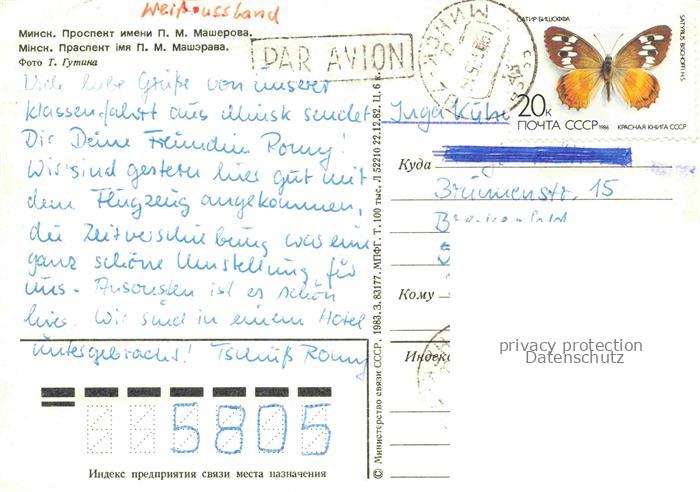 Weißrussland
Минск. Проспект имени П. М. Машерова.
Мінск. Праспект імя П. М. Машэрава.
Фото Т. Гутина
PAR AVION
МИНСК
САТИР БИШОФФА
SATYRUS BISCHOFFI H.S.
20к
ПОЧТА СССР 1986 КРАСНАЯ КНИГА СССР
Viele liebe Grüße von unserer
Klassenfahrt aus Minsk sendet
Dir Deine Freundin Romy!
Wir sind gestern hier gut mit
dem Flugzeug angekommen,
die Zeitverschiebung war eine
ganz schöne Umstellung für
uns. Ansonsten ist es schön
hier. Wir sind in einem Hotel
untergebracht! Tschüß Romy
© Министерство связи СССР, 1983. З. 83177. МПФГ. Т. 100 тыс. Л 52210 22.12.82. Ц. 6 к.
Куда
Brunnenstr. 15
Кому
Индекс
privacy protection
Datenschutz
5805
Индекс предприятия связи места назначения